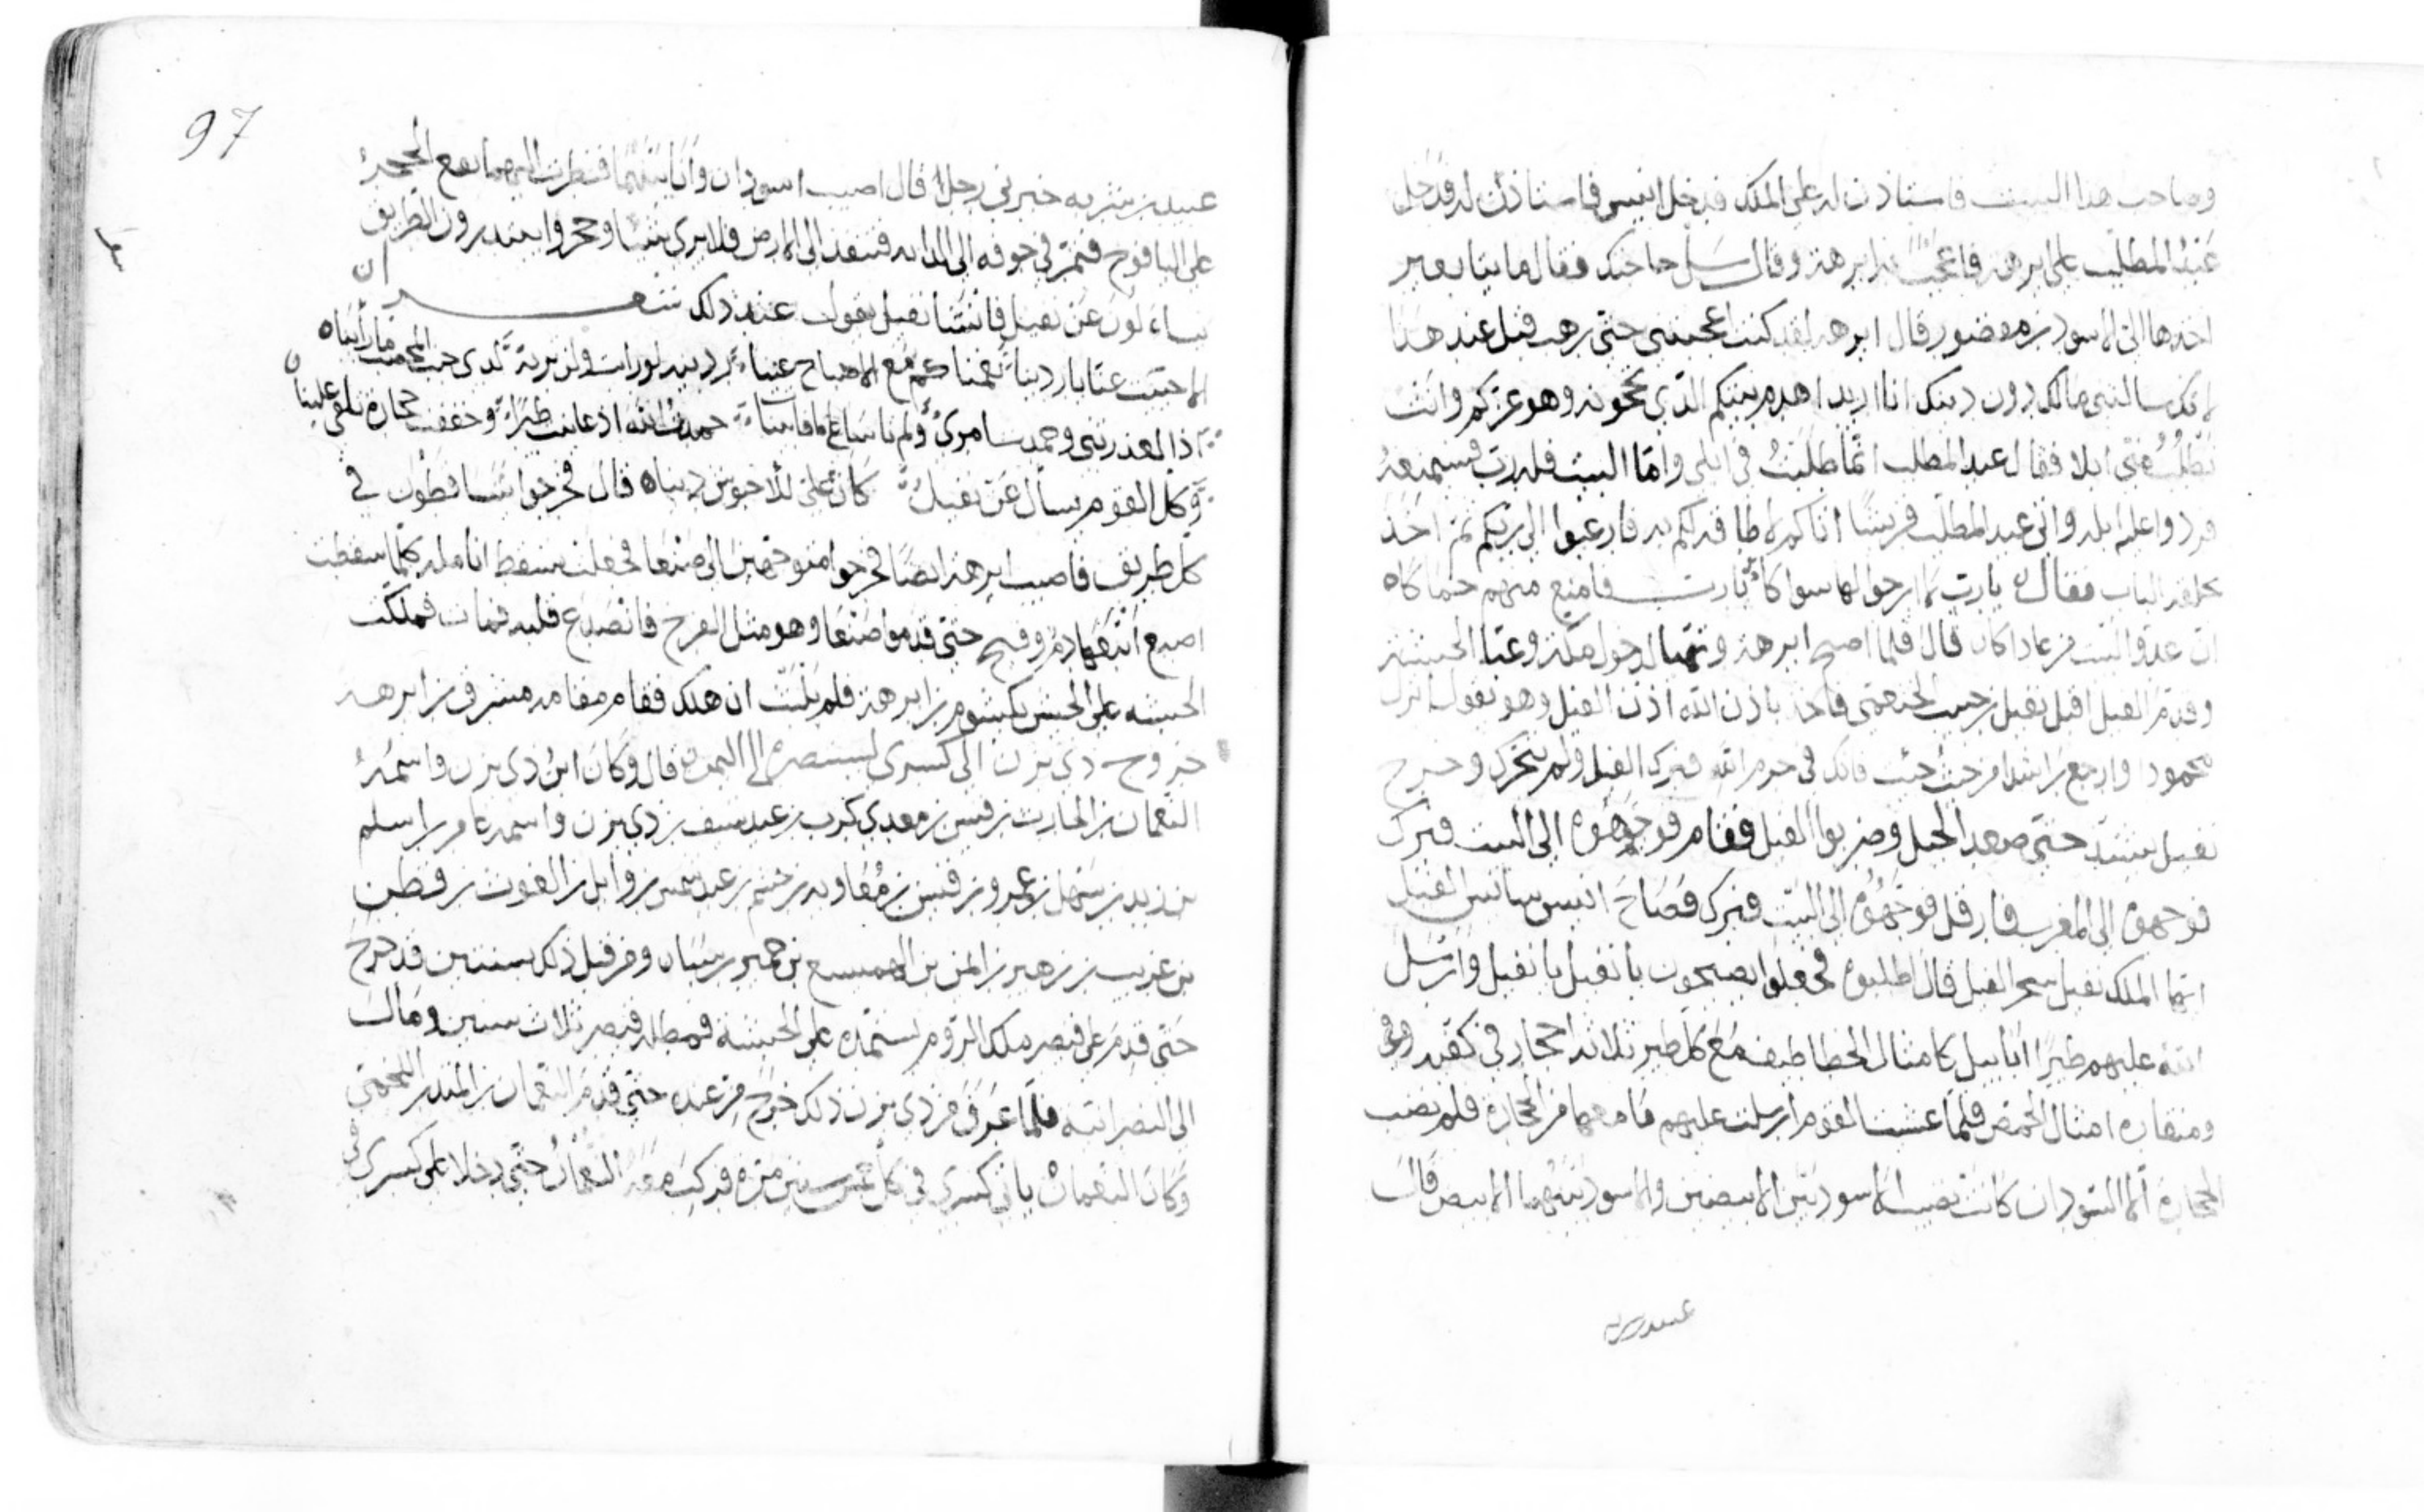 وصاحب هذا البيت فاستاذن له على الملك فدخل انيس فاستاذن له فدخل
عبد المطلب على ابرهة فاعجب به ابرهة وقال سل حاجتك فقال مايتا بعير
اخذها الى الاسود بن مقصور قال ابرهه لقد كنت اعجبتني حتى زهب قبل عند هذا
لانك سالتني مالك دون دينك انا اريد اهدم بيتكم الذي تحجونه وهو عزكم وانت
تطلب مني ابلا فقال عبد المطلب انما طلبتُ في ابلي واما البيت فله رب فسيمنعه
فردوا عليه ابله واتى عبد المطلب قريشا انا كم لا طاقة لكم به فارغبوا الى ربكم ثم اخذ
بحلقة الباب فقال يارب لا ارجو لها سواكا يارب فامنع منهم حماكاه
ان عدو البيت من عاداكا قال فلما اصبح ابرهة وتهيا لدخول مكة وعبا الحبشة
وقدم الفيل اقبل نفيل بن حبيب الخثعمي فاخذ باذن الله اذن الفيل وهو يقول ابرك
محمود اوارجع راشدا من حيث جيت فانك في حرم الله فبرك الفيل ولم يتحرك وخرج
نفيل يشتد حتى صعد الجبل وضربوا الفيل فقام فوجهوه الى البيت فبرك
فوجهوه الى المغرب فارقل فوجهوه الى البيت فبرك فصاح انيس سايس الفيل
ايها الملك نفيل سحر الفيل قال اطلبوه فجعلوا يصيحون يا نفيل يا نفيل وارسل
الله عليهم طيرا ابابيل كامثال الخطاطيف مع كل طير ثلاثة احجار في كفيه وفي
ومنقاره امثال الحمص فلما غشيت القوم ارسلت عليهم ما معها من الحجارة فلم يصب
الحجارة الا السودان كانت تصيب الاسود بين الابيضين والاسود بينهما الابيض قال
عبيد بن شريه
97
عبيد بن شريه خبرني رجل قال اصيب اسودان وانا بينهما فنظرت اليهما يقع الحجر
على اليافوخ فتمر في جوفه الى الدابه فتنفذ الى الارض فلا يرى شيا وخرجوا يبتدرون الطريق
يساءلون عن نفيل فانشا نفيل يقول عند ذلك شعر
الا حييت عنا يا ردينا نعمناكم مع الاصباح عينا ردينه لو رايت ولن تريه لدى جنب المحصب ما رأيناه
اذا لعذرتني وحمدت امري ولم تاسا على ما فات بينا حمدت الله اذ عاينت طيرا وخفت حجارة تلقى علينا
وكل القوم يسال عن نفيل كان علي للاحبوش ديناه قال فخرجوا يتساقطون في
كل طريق فاصيب ابرهة ايضا فخرجوا متوجهين الى صنعا فجعلت تسقط انامله كلما سقطت
اصبع اتبعها دم وقيح حتى قدموا صنعا وهو مثل الفرخ فانصدع قلبه فمات فملكت
الحبشه على الحبش يكسوم بن ابرهة فلم يلبث ان هلك فقام مقامه مسروق بن ابرهة
خروج دي يزن الى كسرى ليستنصره الى اليمن قال وكان ابن ذي يزن واسمه
النعمان بن الحارث بن قيس بن معدي كرب بن عبد سيف بن ذي يزن واسمه عامر بن اسلم
بن زيد بن سهل بن عمرو بن قيس بن معاويه بن جشم بن عبد شمس بن وايل بن الغوث بن قطن
بن عريب بن زهير بن ايمن بن الهميسع بن حمير بن سبا ومن قبل ذلك سنتين قد خرج
حتى قدم على قيصر ملك الروم يستمده على الحبشه فمطله قيصر ثلاث سنين ومال
الى النصرانيه فلما عرف من ذي يزن ذلك خرج من عنده حتى قدم النعمان بن المنذر اللخمي
وكان النعمان ياتي كسرى في كل خمس سنين مرة فركب معه النعمان حتى دخلا على كسرى في